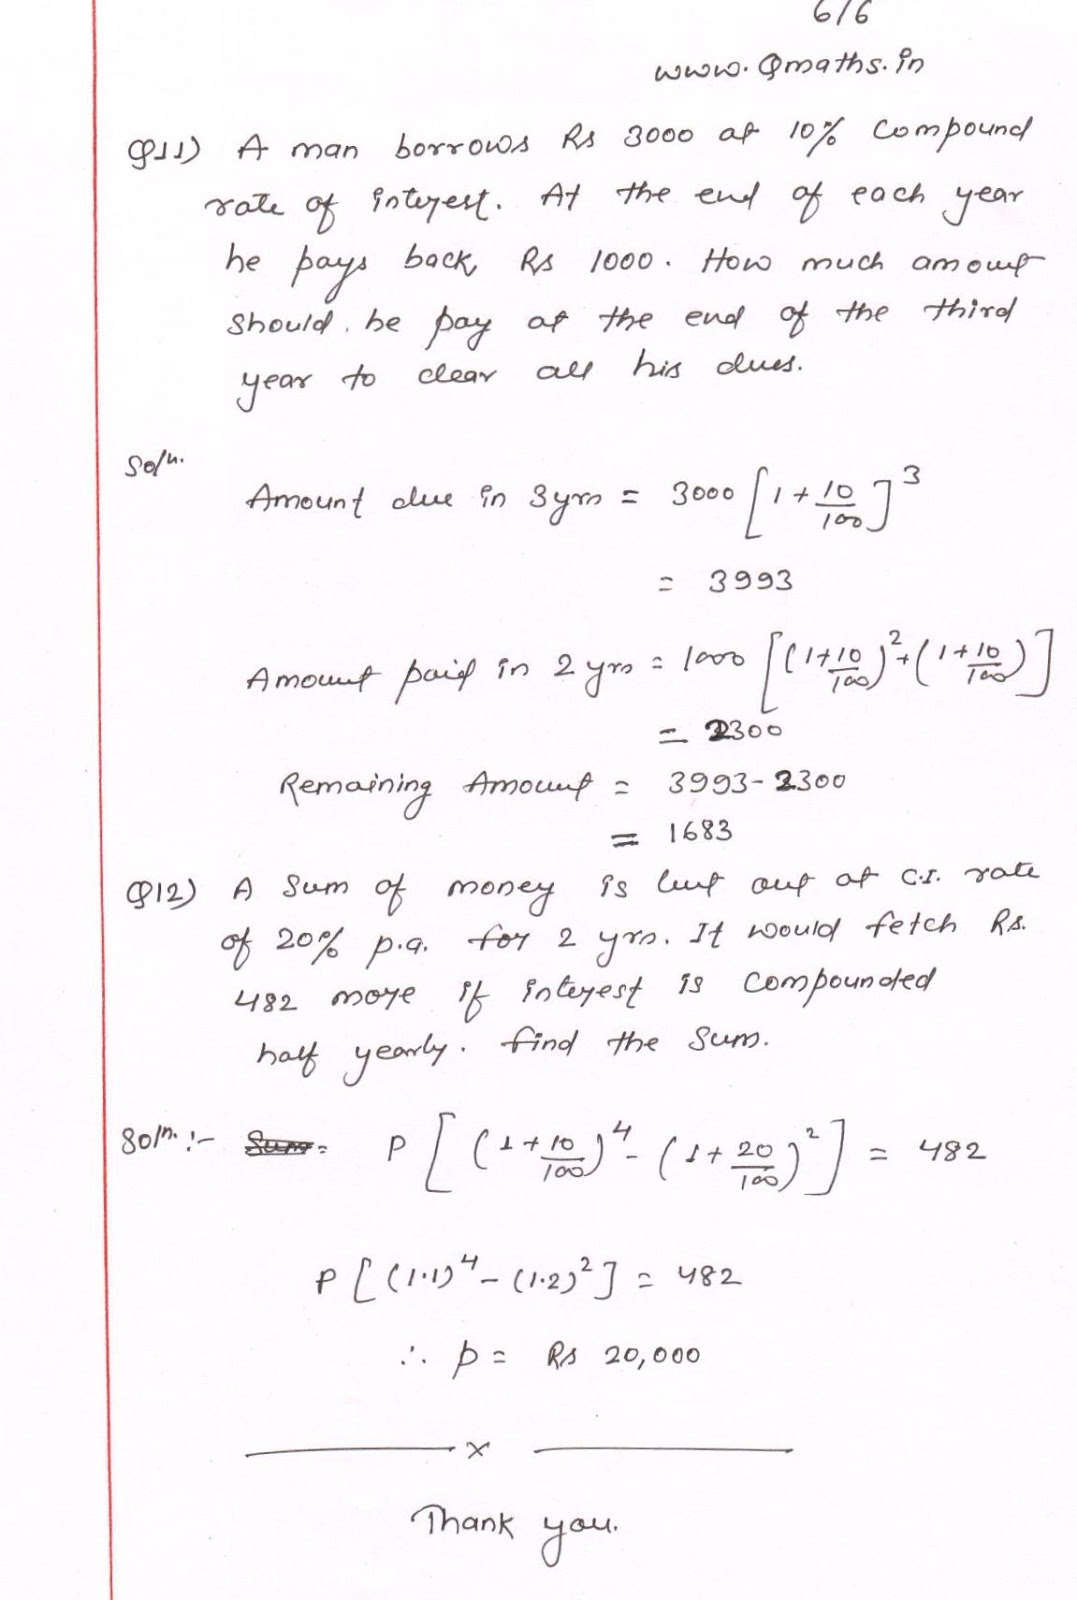 6/6
www.Qmaths.in
Q11) A man borrows Rs 3000 at 10% compound
rate of interest. At the end of each year
he pays back Rs 1000. How much amount
should he pay at the end of the third
year to clear all his dues.
Soln.
Amount due in 3yrs = 3000 [1 + 10/100]^3
= 3993
Amount paid in 2 yrs = 1000 [(1+10/100)^2+(1+10/100)]
= 2300
Remaining Amount = 3993-2300
= 1683
Q12) A sum of money is lent out at C.I. rate
of 20% p.a. for 2 yrs. It would fetch Rs.
482 more if interest is compounded
half yearly. find the sum.
Soln. :- Sum = P [(1+10/100)^4 - (1+20/100)^2] = 482
P[(1.1)^4-(1.2)^2] = 482
∴ p = Rs 20,000
x
Thank you.